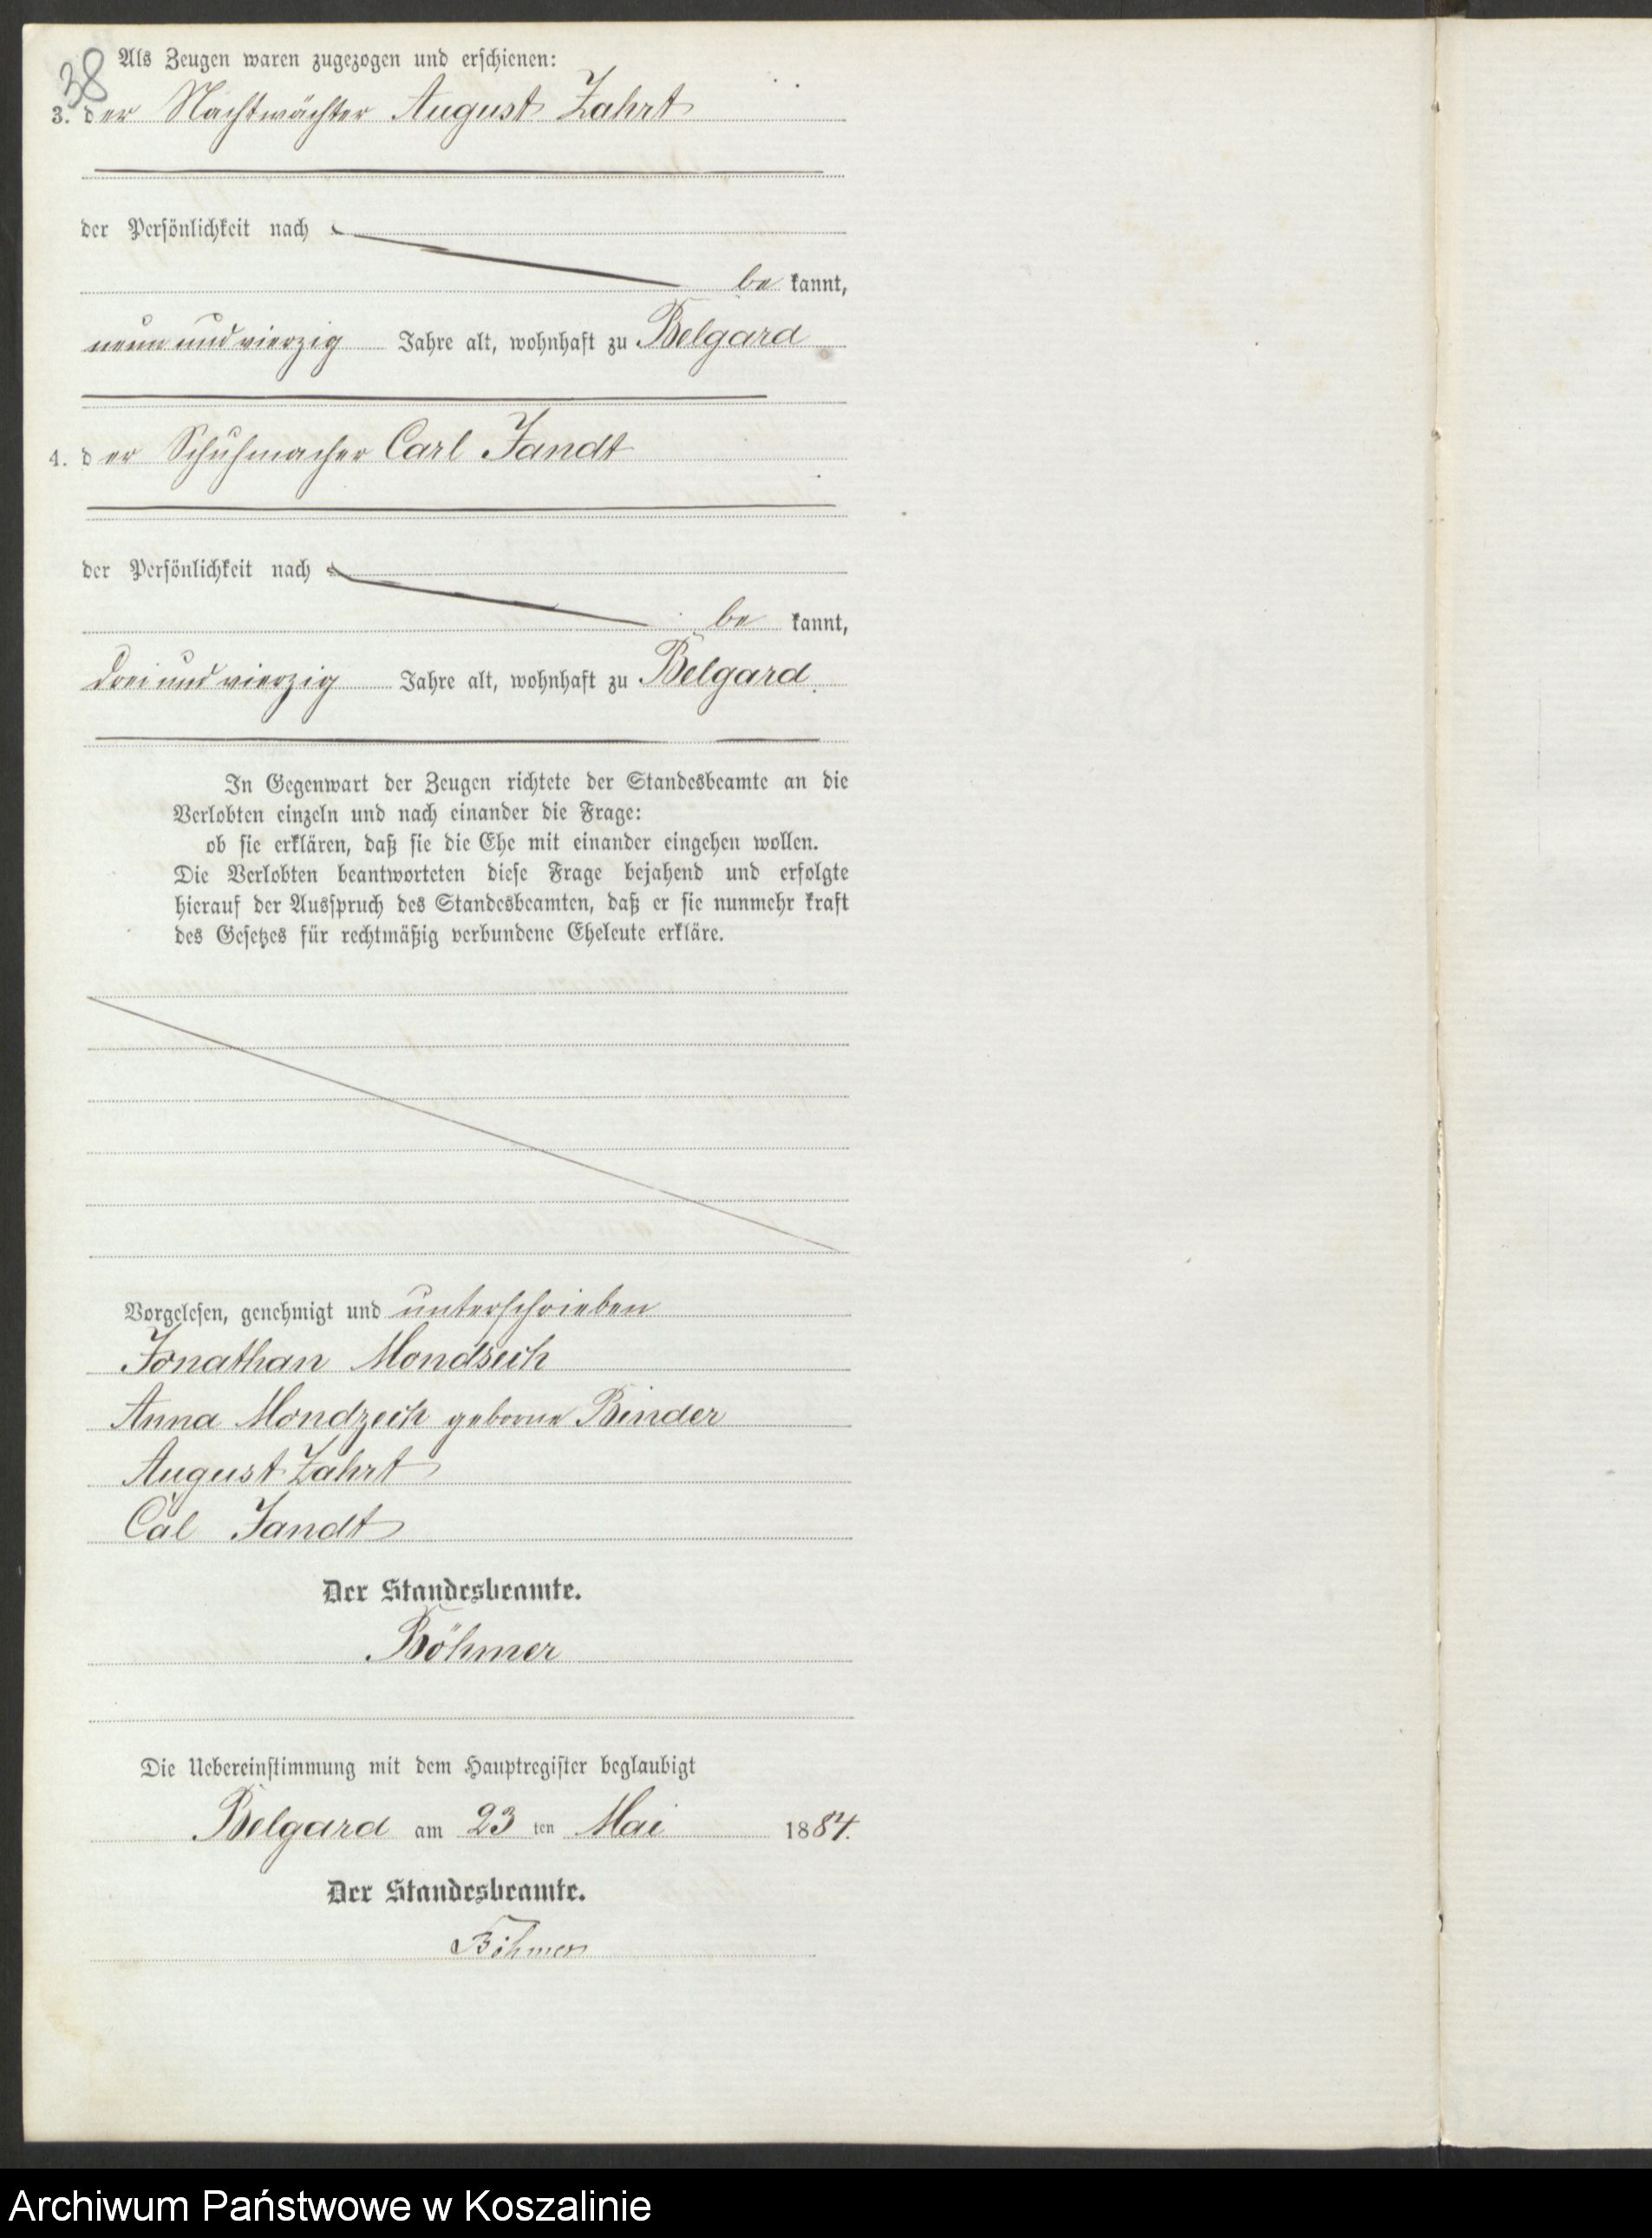 38
Als Zeugen waren zugezogen und erschienen:
3. der Nachtwächter August Zahrt
der Persönlichkeit nach
be kannt,
neun und vierzig Jahre alt, wohnhaft zu Belgard
4. der Schuhmacher Carl Jandt
der Persönlichkeit nach
be kannt,
drei und vierzig Jahre alt, wohnhaft zu Belgard.
In Gegenwart der Zeugen richtete der Standesbeamte an die
Verlobten einzeln und nach einander die Frage:
ob sie erklären, daß sie die Ehe mit einander eingehen wollen.
Die Verlobten beantworteten diese Frage bejahend und erfolgte
hierauf der Ausspruch des Standesbeamten, daß er sie nunmehr kraft
des Gesetzes für rechtmäßig verbundene Eheleute erkläre.
Vorgelesen, genehmigt und unterschrieben
Jonathan Mondzech
Anna Mondzech geborne Binder
August Zahrt
Cal Jandt
Der Standesbeamte.
Böhmer
Die Uebereinstimmung mit dem Hauptregister beglaubigt
Belgard am 23 ten Mai 1884.
Der Standesbeamte.
Böhmer
Archiwum Państwowe w Koszalinie